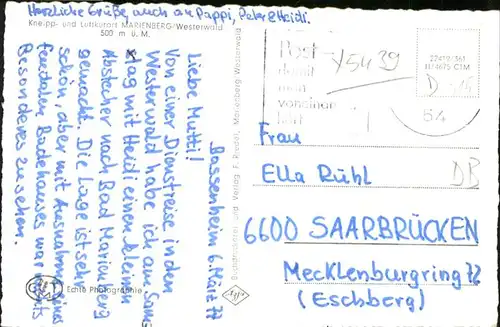 Herzliche Grüße, auch an Pappi, Peter & Heidi.
Kneipp- und Luftkurort MARIENBERG/Westerwald
500 m ü. M.
Bassenheim 6. März 77
Liebe Mutti!
Von einer Dienstreise in den
Westerwald habe ich am Sams-
tag mit Heidi einen kleinen
Abstecher nach Bad Marienberg
gemacht. Die Lage ist sehr
schön, aber mit Ausnahme des
feudalen Badehauses war nichts
Besonderes zu sehen.
Echte Photographie
Agfa
Post
damit
man
voneinander
hört
Y5439
22419/361
D
54
DB
Frau
Ella Rühl
6600 SAARBRÜCKEN
Mecklenburgring 72
(Eschberg)